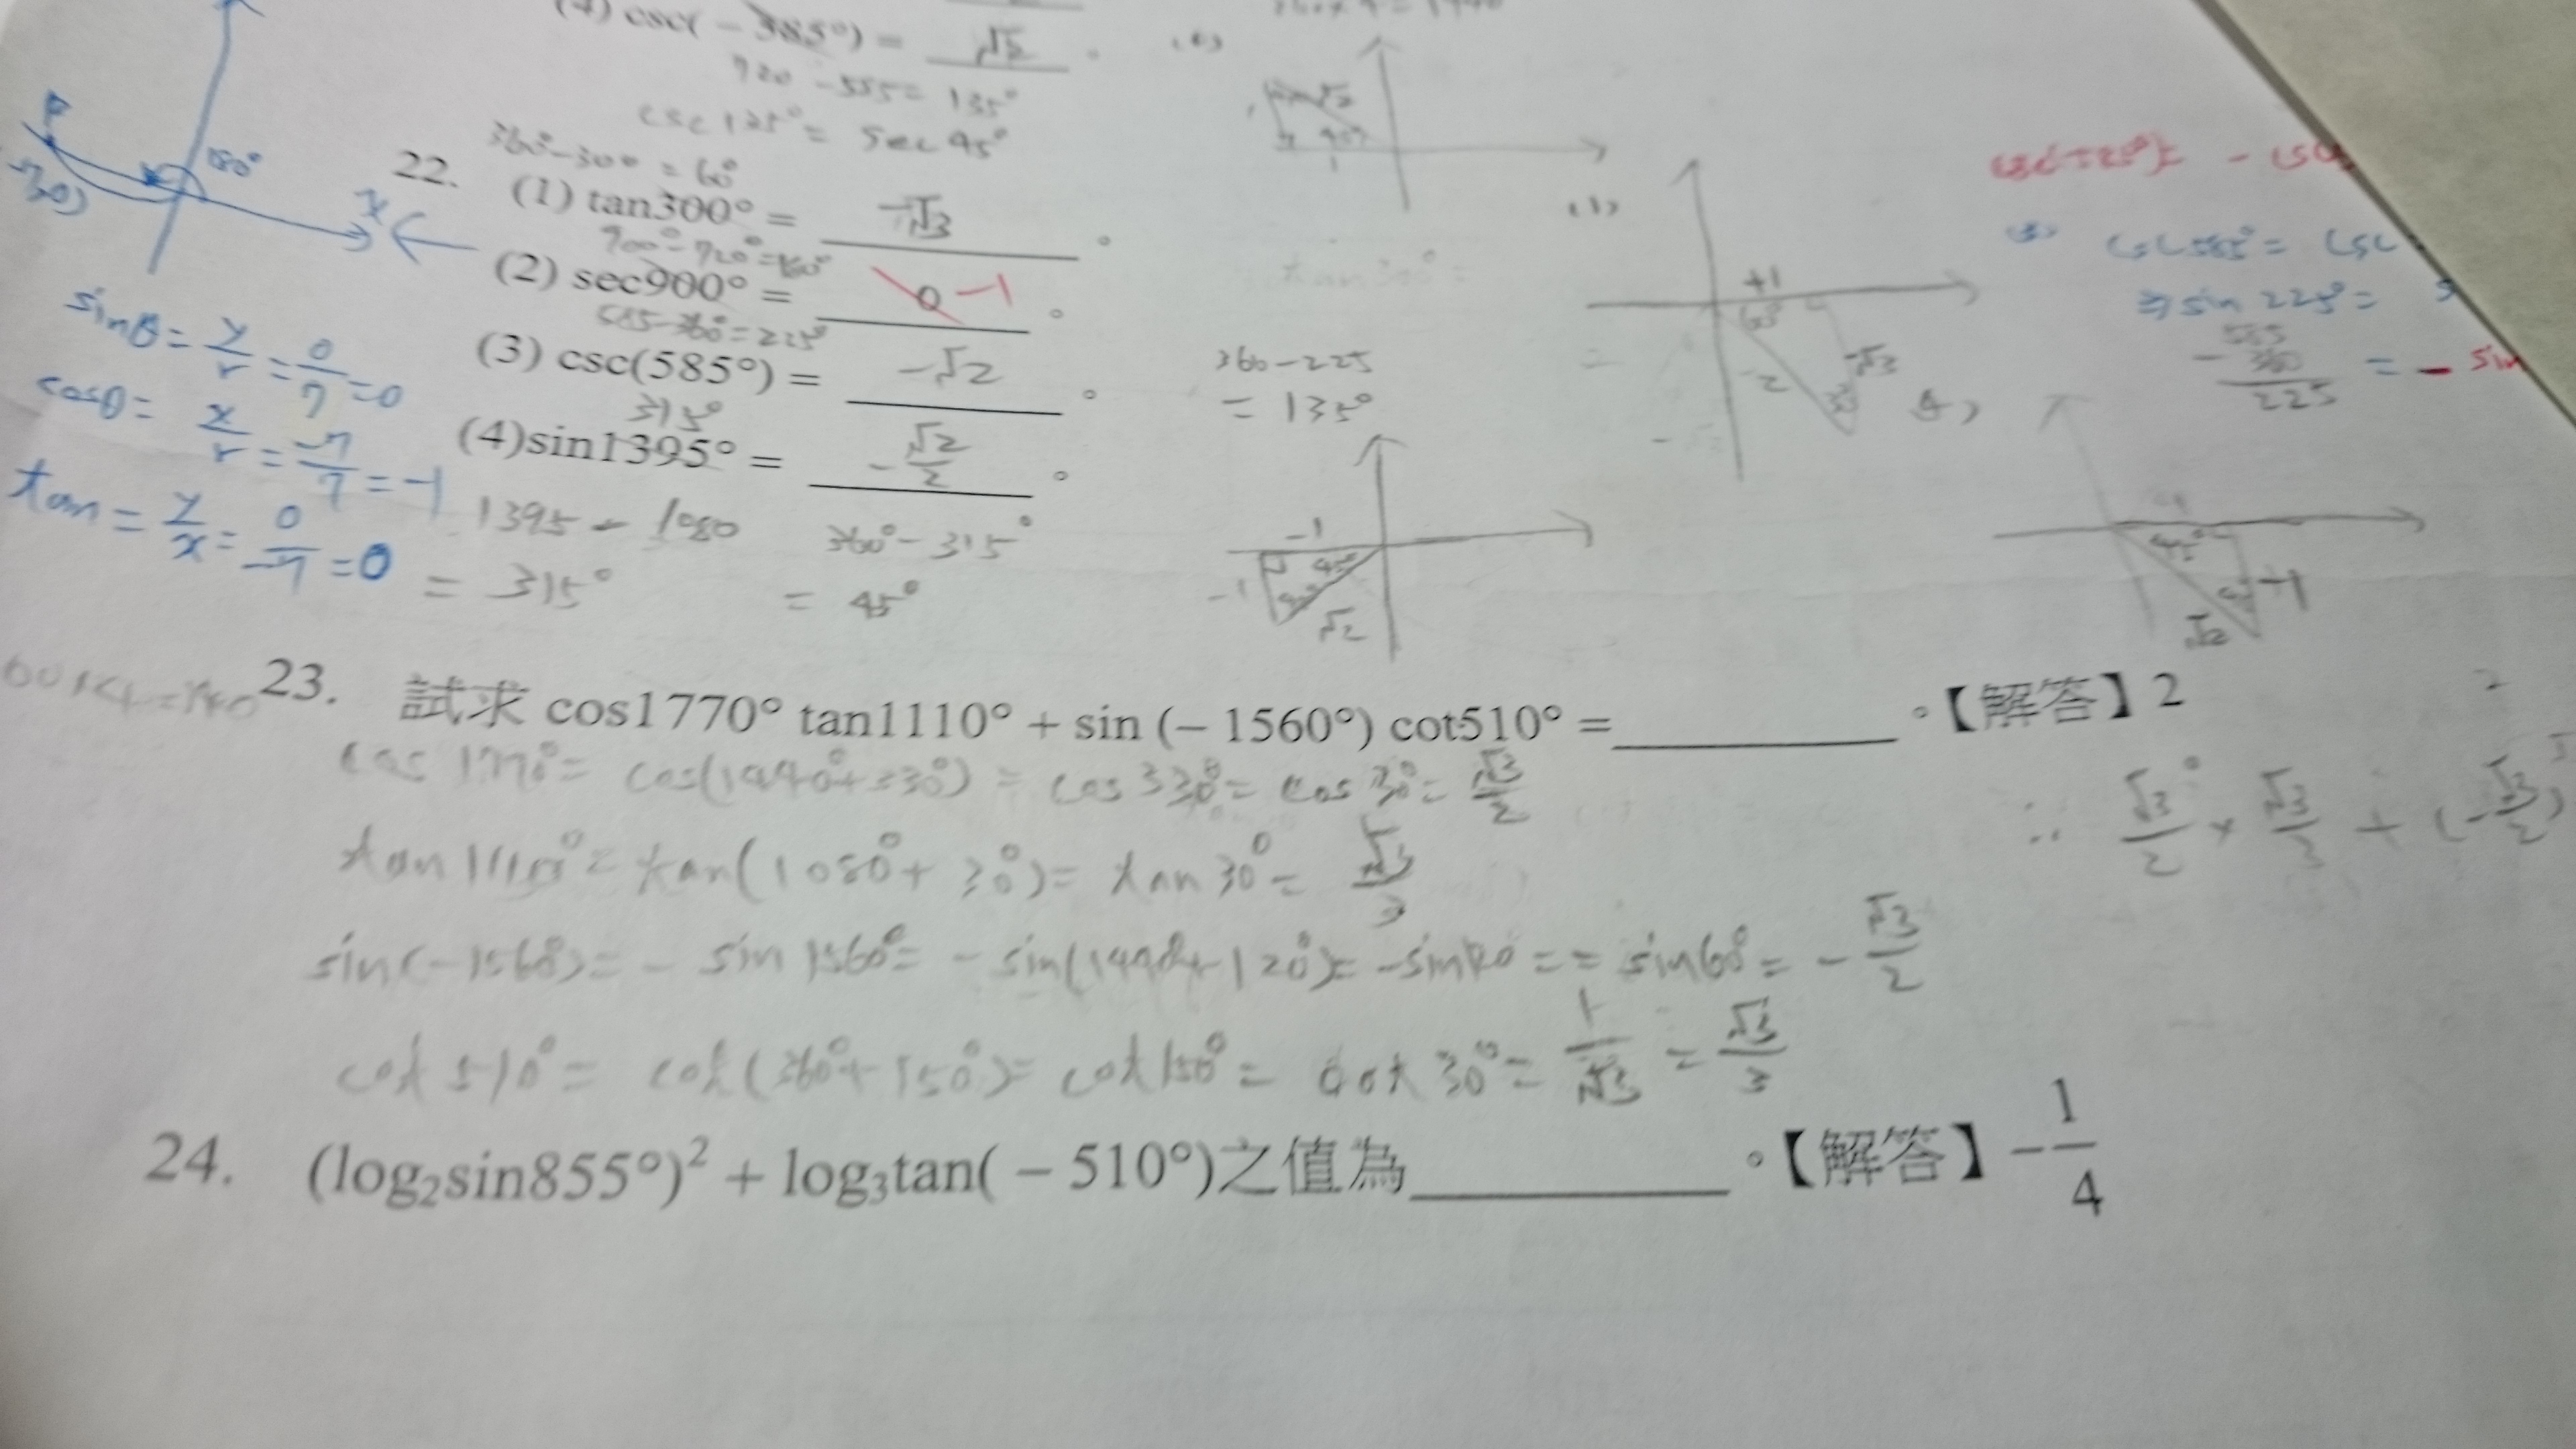 (4) csc( − 585°) = √2 。
720 − 585 = 135°
csc 135° = sec 45°
360° − 300° = 60°
22.
(1) tan300° = −√3 。
900° − 720° = 180°
(2) sec900° = 0 −1 。
585 − 360 = 225°
(3) csc(585°) = −√2 。
315°
(4)sin1395° = −√2/2 。
1395 − 1080
= 315°
360° − 315°
= 45°
P
180°
x
sinθ = y/r = 0/7 = 0
cosθ = x/r = −7/7 = −1
tan = y/x = 0/−7 = 0
√2
1
(1)
+1
60°
2
−√3
30°
360 − 225
= 135°
−1
45°
−1
√2
csc585° = csc
sin 225° =
585
− 360
225
= − sin
(4)
45°
−1
√2
23. 試求 cos1770° tan1110° + sin (− 1560°) cot510° = 。【解答】2
cos 1770° = cos(1440° + 330°) = cos 330° = cos 30° = √3/2
tan 1110° = tan(1080° + 30°) = tan 30° = √3/3
sin(−1560°) = − sin 1560° = − sin(1440° + 120°) = −sin120 = − sin60° = − √3/2
cot 510° = cot(360° + 150°) = cot 150° = cot 30° = 1/√3 = √3/3
∴ √3/2 × √3/3 + (−√3/2)
24. (log₂sin855°)² + log₃tan( − 510°)之值為 。【解答】−1/4